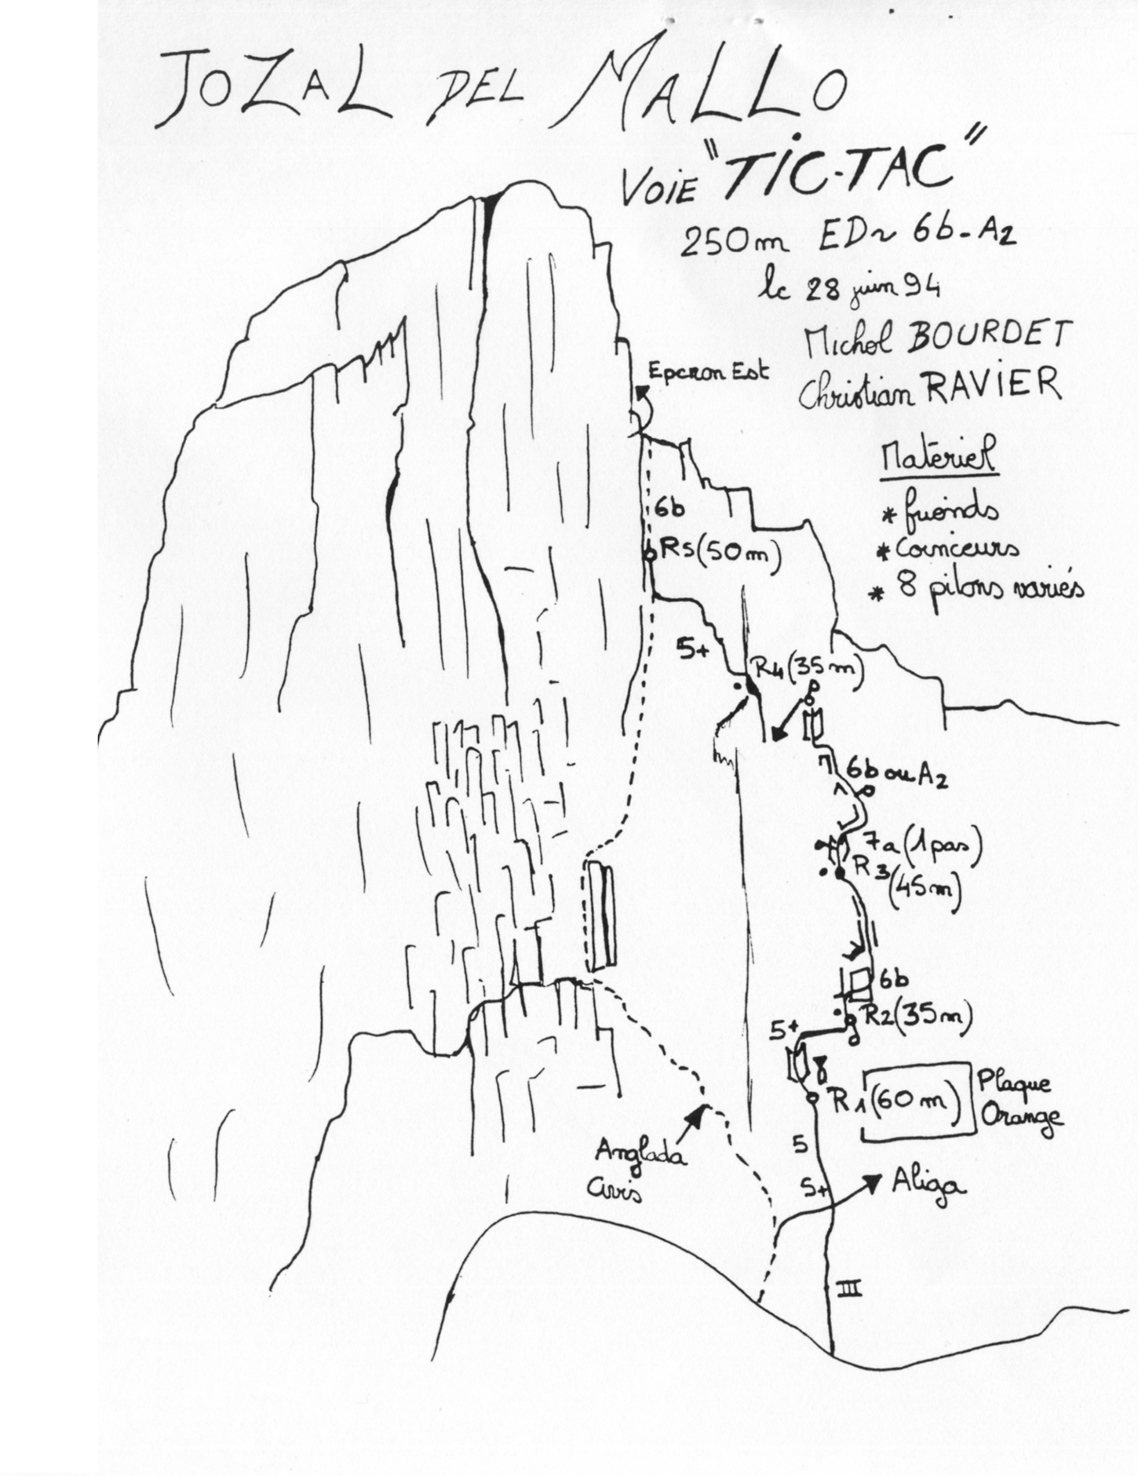 JOZAL DEL MALLO
VOIE "TIC-TAC"
250m ED~ 6b-A2
le 28 juin 94
Michel BOURDET
Christian RAVIER
Eperon Est
Matèriel
* friends
* Coinceurs
* 8 pitons variés
6b
R5(50m)
5+
R4(35m)
6b ou A2
7a (1 pas)
R3
(45m)
6b
R2(35m)
5+
R1(60m)
Plaque
Orange
5
Anglada
Civis
5+
Aliga
III